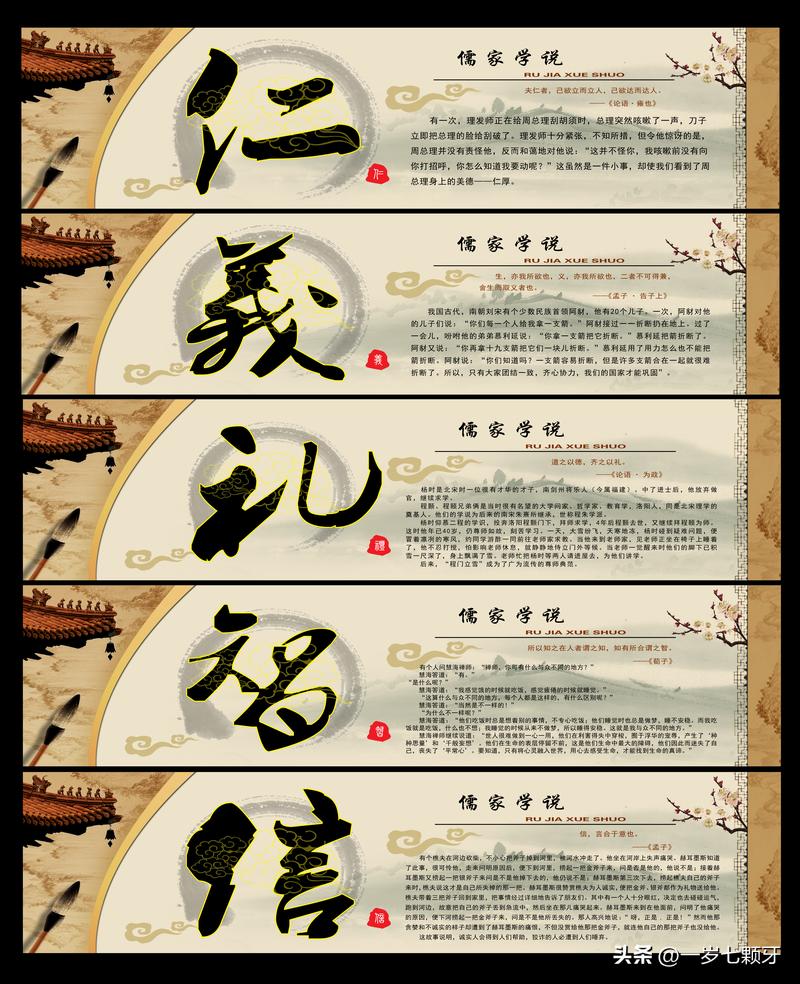 仁
仁
儒家学说
RU JIA XUE SHUO
夫仁者，己欲立而立人，己欲达而达人。
——《论语·雍也》
有一次，理发师正在给周总理刮胡须时，总理突然咳嗽了一声，刀子
立即把总理的脸给刮破了。理发师十分紧张，不知所措，但令他惊讶的是，
周总理并没有责怪他，反而和蔼地对他说：“这并不怪你，我咳嗽前没有向
你打招呼，你怎么知道我要动呢？”这虽然是一件小事，却使我们看到了周
总理身上的美德——仁厚。
義
義
儒家学说
RU JIA XUE SHUO
生，亦我所欲也，义，亦我所欲也，二者不可得兼，
舍生而取义者也。
——《孟子·告子上》
我国古代，南朝刘宋有个少数民族首领阿豺，他有20个儿子。一次，阿豺对他
的儿子们说：“你们每一个人给我拿一支箭。”阿豺接过一一折断扔在地上。过了
一会儿，吩咐他的弟弟慕利延说：“你拿一支箭把它折断。”慕利延把箭折断了。
阿豺又说：“你再拿十九支箭把它们一块儿折断。”慕利延用了用力怎么也不能把
箭折断。阿豺说：“你们知道吗？一支箭容易折断，但是许多支箭合在一起就很难
折断了。所以，只有大家团结一致，齐心协力，我们的国家才能巩固”。
礼
禮
儒家学说
RU JIA XUE SHUO
道之以德，齐之以礼。
——《论语·为政》
杨时是北宋时一位很有才华的才子，南剑州将乐人（今属福建）。中了进士后，他放弃做
官，继续求学。
程颢、程颐兄弟俩是当时很有名望的大学问家、哲学家、教育学，洛阳人，同是北宋理学的
奠基人。他们的学说为后来的南宋朱熹所继承，世称程朱学派。
杨时仰慕二程的学识，投奔洛阳程颢门下，拜师求学，4年后程颢去世，又继续拜程颐为师。
这时他年已40岁，仍尊师如故，刻苦学习。一天，大雪纷飞，天寒地冻，杨时碰到疑难问题，便
冒着凛冽的寒风，约同学游酢一同前往老师家求教。当他来到老师家，见老师正坐在椅子上睡着
了，他不忍打搅，怕影响老师休息，就静静地侍立门外等候。当老师一觉醒来时他们的脚下已积
雪一尺深了，身上飘满了雪。老师忙把杨时等两人请进屋去，为他们讲学。
后来，“程门立雪”成为了广为流传的尊师典范。
智
智
儒家学说
RU JIA XUE SHUO
所以知之在人者谓之知，知有所合谓之智。
——《荀子》
有个人问慧海禅师：“禅师，你可有什么与众不同的地方？”
慧海答道：“有。”
“是什么呢？”
慧海答道：“我感觉饿的时候就吃饭，感觉疲倦的时候就睡觉。”
“这算什么与众不同的地方，每个人都是这样的，有什么区别呢？”
慧海答道：“当然是不一样的！”
“为什么不一样呢？”
慧海答道：“他们吃饭时总是想着别的事情，不专心吃饭；他们睡觉时也总是做梦，睡不安稳。而我吃
饭就是吃饭，什么也不想；我睡觉的时候从来不做梦，所以睡得安稳。这就是我与众不同的地方。”
慧海禅师继续说道：“世人很难做到一心一用，他们在利害得失中穿梭，囿于浮华的宠辱，产生了‘种
种思量’和‘千般妄想’。他们在生命的表层停留不前，这是他们生命中最大的障碍，他们因此而迷失了自
己，丧失了‘平常心’。要知道，只有将心灵融入世界，用心去感受生命，才能找到生命的真谛。”
信
信
儒家学说
RU JIA XUE SHUO
信，言合于意也。
——《孟子》
有个樵夫在河边砍柴，不小心把斧子掉到河里，被河水冲走了。他坐在河岸上失声痛哭。赫耳墨斯知道
了此事，很可怜他，走来问明原因后，便下到河里，捞起一把金斧子来，问是否是他的，他说不是；接着赫
耳墨斯又捞起一把银斧子来问是不是他掉下去的，他仍说不是；赫耳墨斯第三次下去，捞起樵夫自己的斧子
来时，樵夫说这才是自己所失掉的那一把。赫耳墨斯很赞赏樵夫为人诚实，便把金斧、银斧都作为礼物送给他。
樵夫带着三把斧子回到家里，把事情经过详细地告诉了朋友们。其中有一个人十分眼红，决定也去碰碰运气，
跑到河边，故意把自己的斧子丢到急流中，然后坐在那儿痛哭起来。赫耳墨斯来到他面前，问明了他痛哭
的原因，便下河捞起一把金斧子来，问是不是他所丢失的。那人高兴地说：“呀，正是，正是！”然而他那
贪婪和不诚实的样子却遭到了赫耳墨斯的痛恨，不但没赏给他那把金斧子，就连他自己的那把斧子也没给他。
这故事说明，诚实人会得到人们帮助，狡诈的人必遭到人们唾弃。
头条 @一岁七颗牙